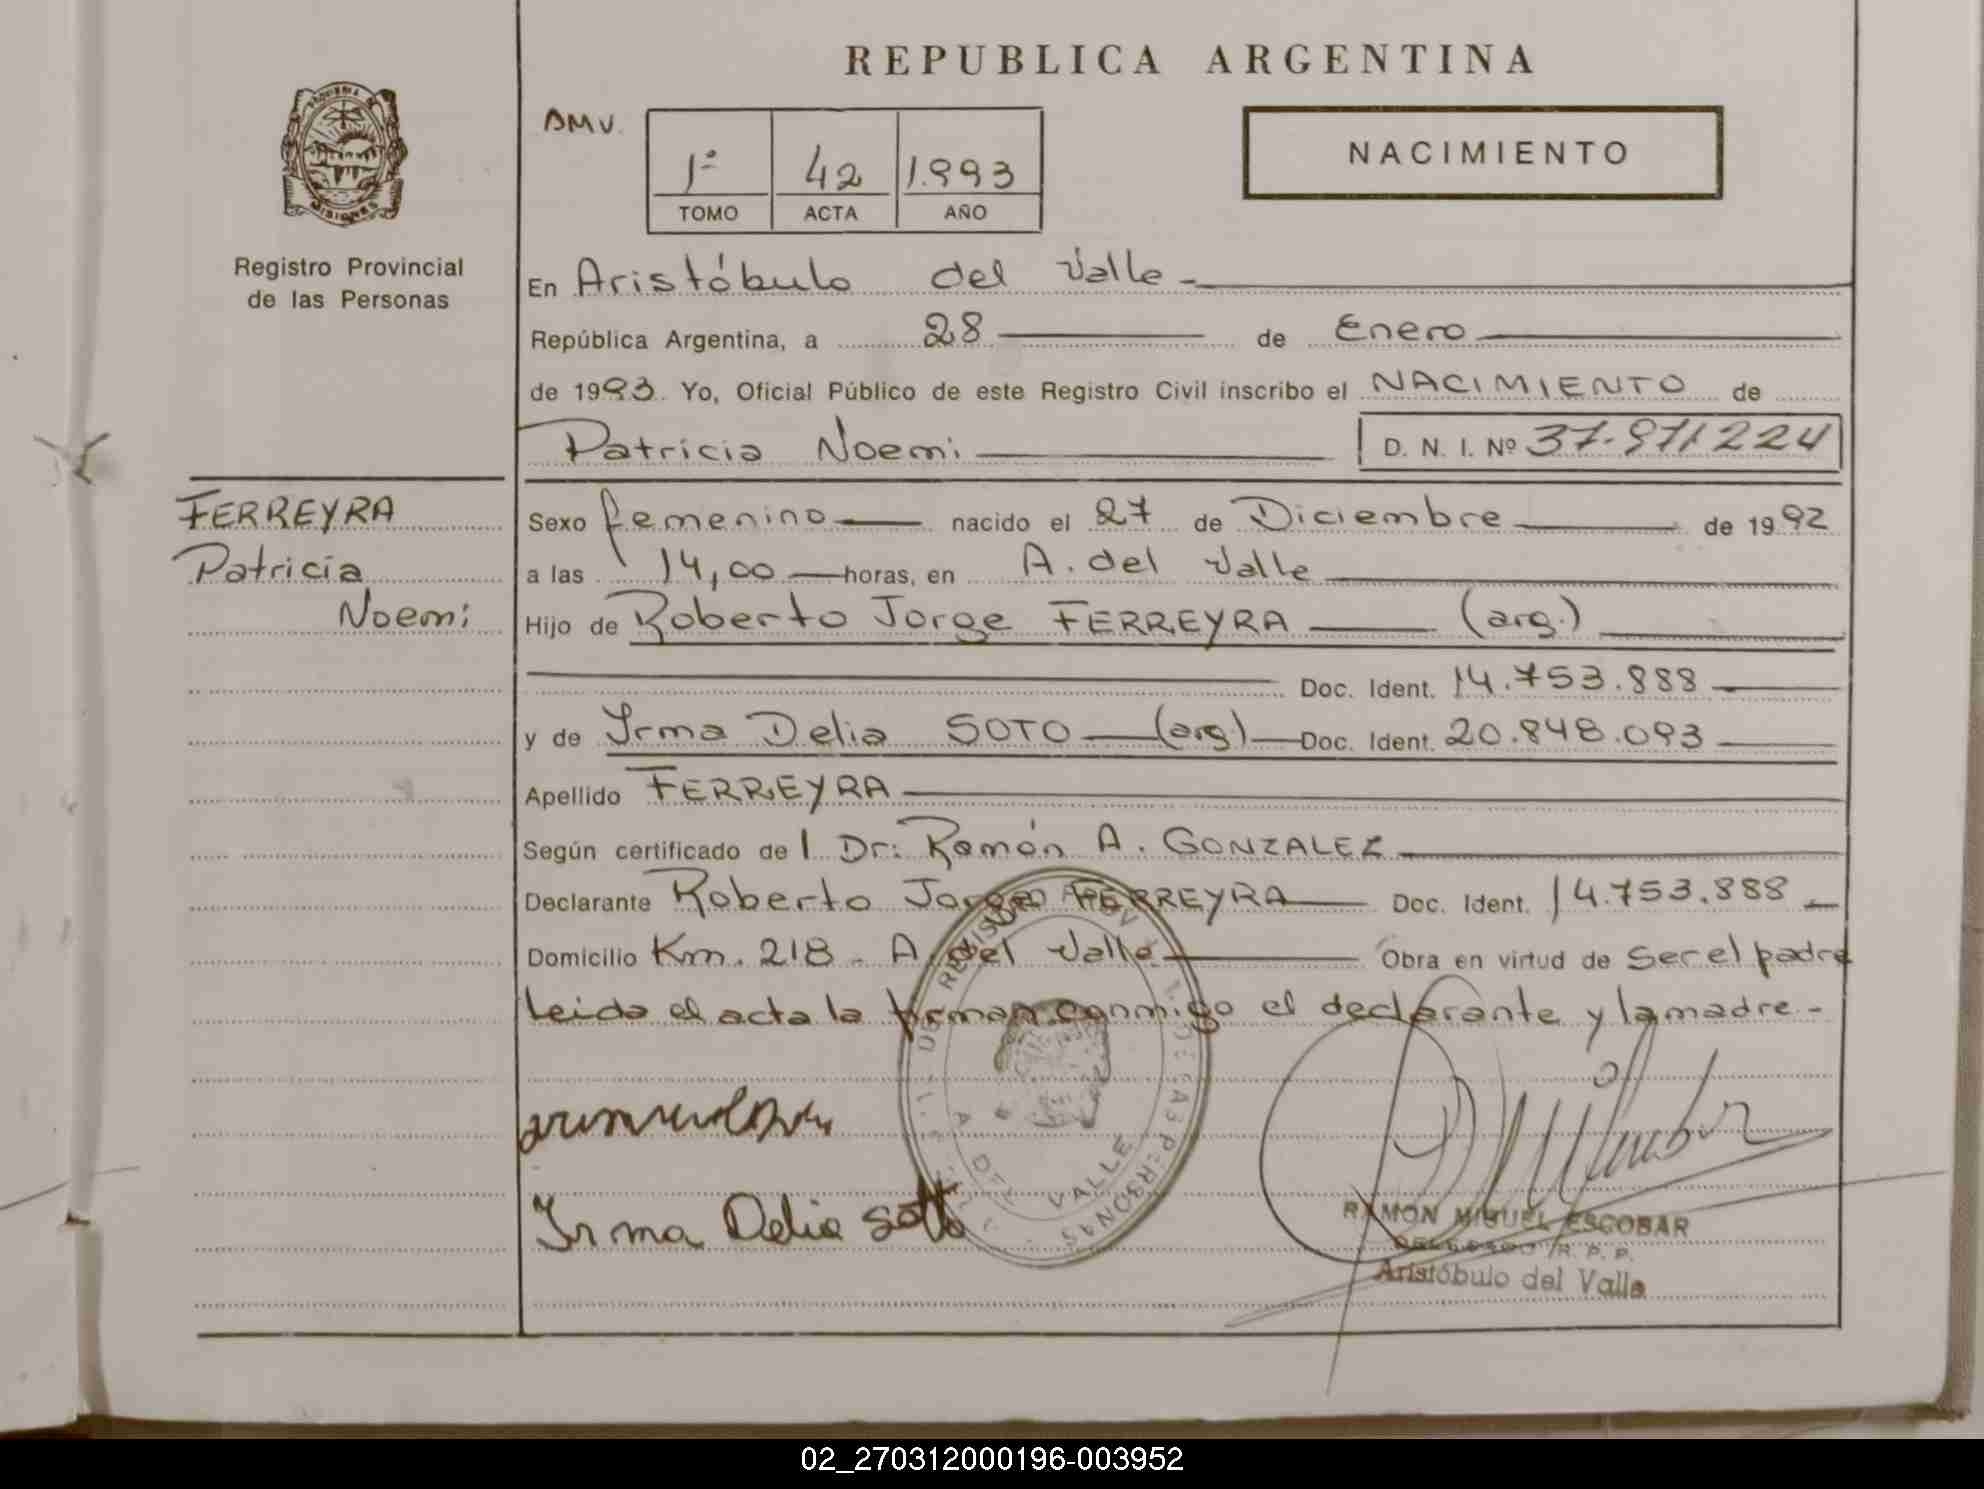 REPUBLICA ARGENTINA
PROVINCIA DE
MISIONES
Registro Provincial
de las Personas
DMV.
1º 42 1.993
TOMO ACTA AÑO
NACIMIENTO
En Aristóbulo del Valle -
República Argentina, a 28 de Enero
de 1993. Yo, Oficial Público de este Registro Civil inscribo el NACIMIENTO de
Patricia Noemi D. N. I. Nº 37.971.224
FERREYRA
Patricia
Noemi
Sexo femenino nacido el 27 de Diciembre de 1992
a las 14,00 horas, en A. del Valle
Hijo de Roberto Jorge FERREYRA (arg.)
Doc. Ident. 14.753.888
y de Irma Delia SOTO (arg) Doc. Ident. 20.848.093
Apellido FERREYRA
Según certificado del Dr: Ramón A. GONZALEZ
Declarante Roberto Jorge FERREYRA Doc. Ident. 14.753.888
Domicilio Km. 218 - A. del Valle Obra en virtud de Ser el padre
Leida el acta la firman conmigo el declarante y la madre -
A. DEL VALLE
Irma Delia Soto
RAMON MIGUEL ESCOBAR
DELEGADO R. P. P.
Aristóbulo del Valle
02_270312000196-003952